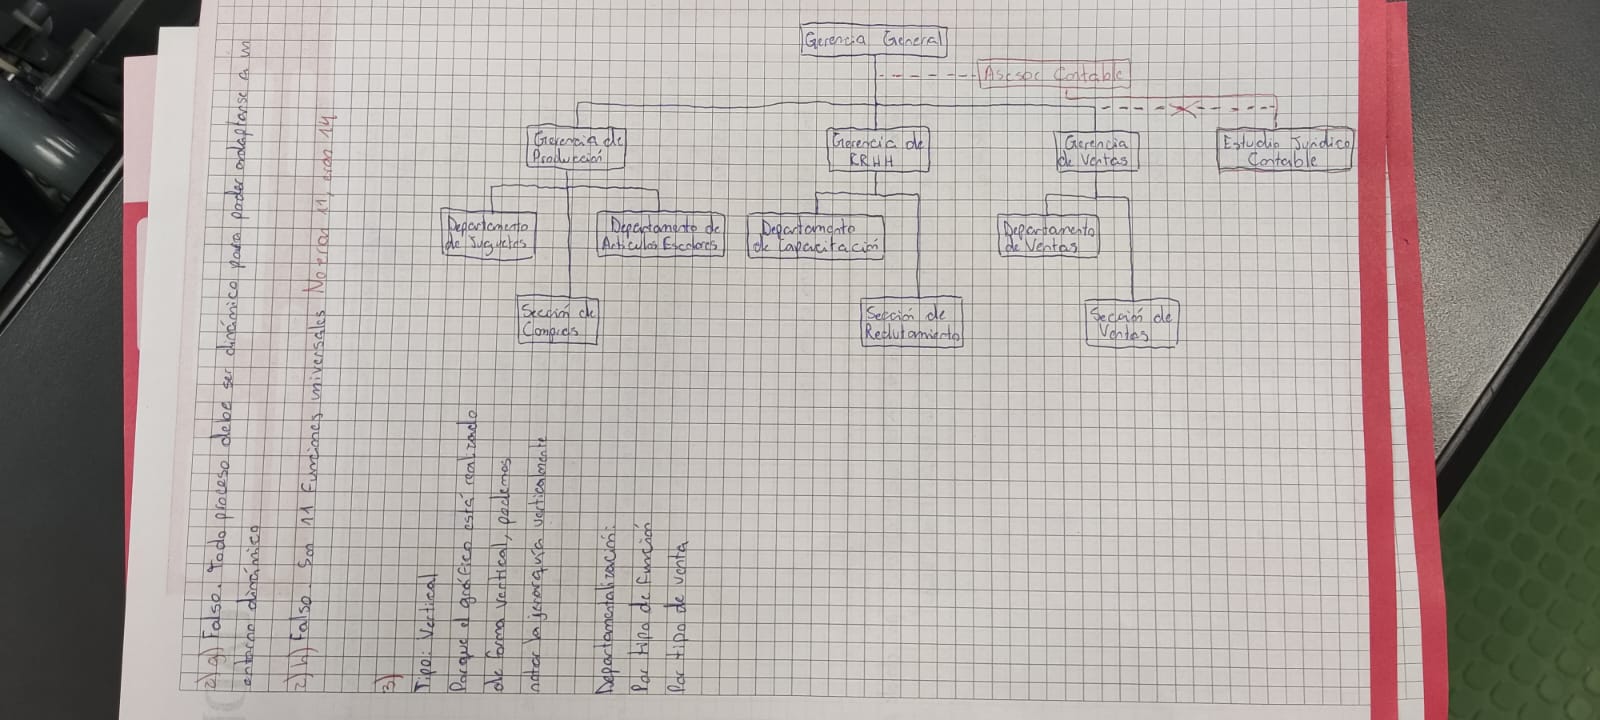 2) g) Falso. Todo proceso debe ser dinámico para poder adaptarse a un
entorno dinámico
2) h) Falso. Son 11 Funciones universales No eran 11, eran 14
3)
Tipo: Vertical
Porque el gráfico está realizado
de forma vertical, podemos
notar la jerarquía verticalmente
Departamentalización:
Por tipo de función
Por tipo de venta
Gerencia General
Asesor Contable
Gerencia de
Producción
Gerencia de
RRHH
Gerencia
de Ventas
Estudio Jurídico
Contable
Departamento
de Juguetes
Departamento de
Artículos Escolares
Departamento
de Capacitación
Departamento
de Ventas
Sección de
Compras
Sección de
Reclutamiento
Sección de
Ventas